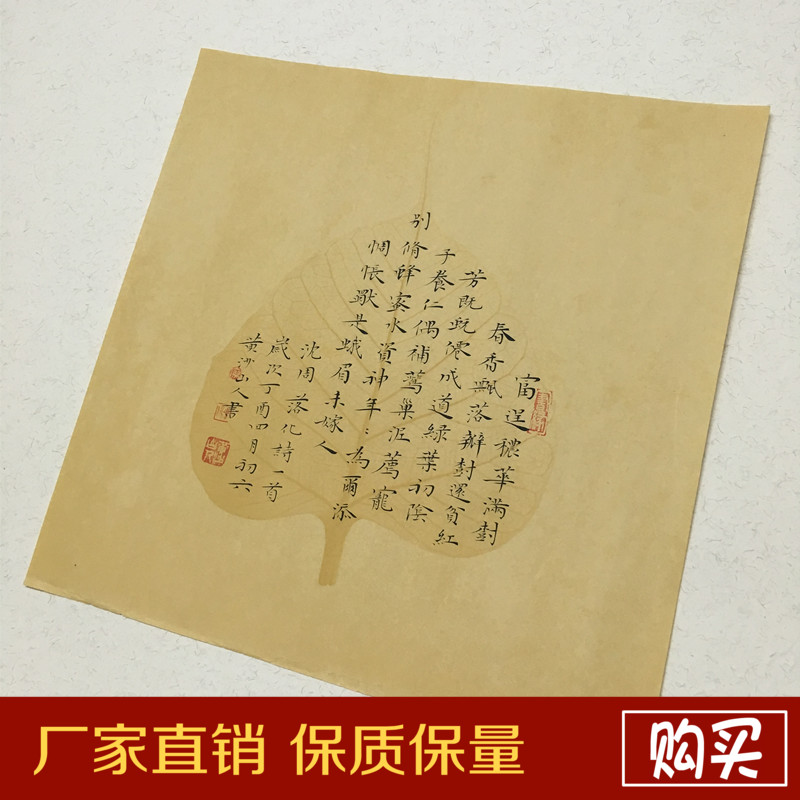 富逞穠華滿尌
春香飄落瓣尌還貧紅
芳既蛻僊成道綠葉初陰
子養仁偶補鷰巢泥薦寵
別脩蜂蜜水資神年〻為爾添
惆悵是蛾眉未嫁人
沈周落化詩一首
歲次丁酉四月初六
黄沙山人書
厂家直销 保质保量
购买